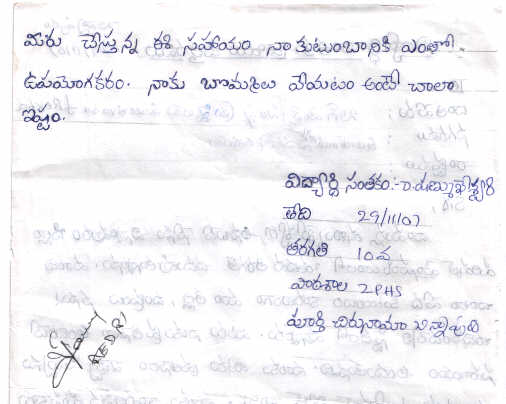 మీరు చేస్తున్న ఈ సహాయం నా కుటుంబానికి ఎంతో
ఉపయోగకరం. నాకు బొమ్మలు వేయటం అంటే చాలా
ఇష్టం.
విద్యార్ధి సంతకం:-
తేది 29/11/07
తరగతి 10వ
పాఠశాల ZPHS
పూర్తి చిరునామా